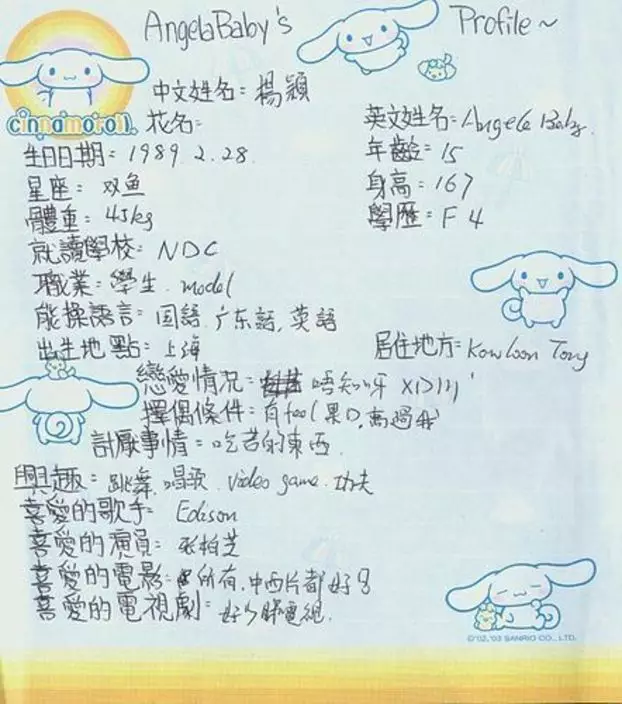 AngelaBaby's Profile~
中文姓名: 楊穎
cinnamoroll 花名: 英文姓名: Angela Baby.
生日日期: 1989. 2. 28. 年齡: 15
星座: 双鱼 身高: 167
體重: 45kg 學歷: F 4
就讀學校: NDC
職業: 學生. model
能操語言: 国語. 广东語. 英語
出生地點: 上海 居住地方: Kowloon Tong
戀愛情況: 唔知呀 XD)))'
擇偶條件: 有feel 果D, 高過我
討厭事情: 吃苦的東西.
興趣: 跳舞. 唱歌. video game. 功夫
喜愛的歌手: Edison
喜愛的演員: 张柏芝
喜愛的電影: 所有. 中西片都好多
喜愛的電視劇: 好少睇電視.
©'02,'03 SANRIO CO., LTD.